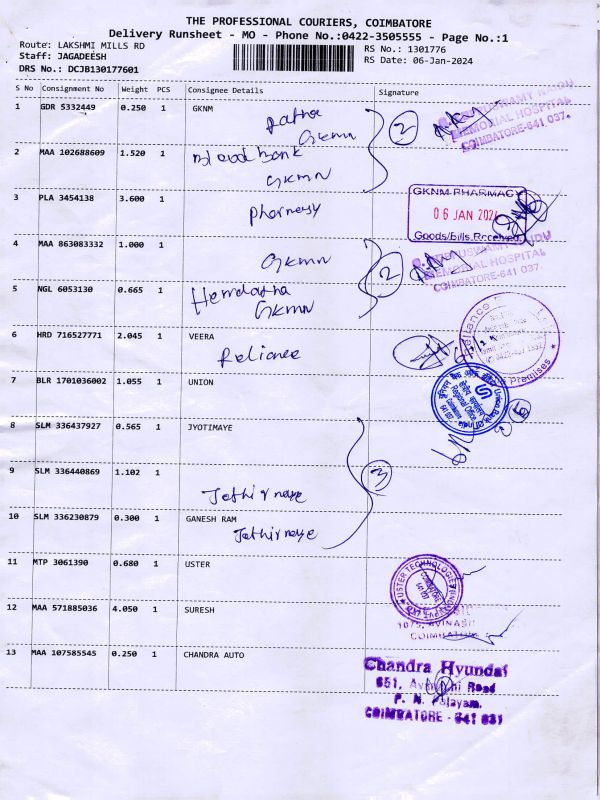 THE PROFESSIONAL COURIERS, COIMBATORE
Delivery Runsheet - MO - Phone No.:0422-3505555 - Page No.:1
Route: LAKSHMI MILLS RD
Staff: JAGADEESH
DRS No.: DCJB130177601
RS No.: 1301776
RS Date: 06-Jan-2024
S No Consignment No Weight PCS Consignee Details Signature
1 GDR 5332449 0.250 1 GKNM
GKMN
2
2 MAA 102688609 1.520 1
GKMN
MEMORIAL HOSPITAL
COIMBATORE-641 037.
3 PLA 3454138 3.600 1
GKNM PHARMACY
06 JAN 2024
Goods/Bills Received
4 MAA 863083332 1.000 1 GKMN
2
MEMORIAL HOSPITAL
COIMBATORE-641 037.
5 NGL 6053130 0.665 1
GKMN
6 HRD 716527771 2.045 1 VEERA
Reliance
7 BLR 1701036002 1.055 1 UNION
Union Bank of India
Regional Office
8 SLM 336437927 0.565 1 JYOTIMAYE
9 SLM 336440869 1.102 1
Jothirmaye
3
10 SLM 336230879 0.300 1 GANESH RAM
Jothirmaye
11 MTP 3061390 0.680 1 USTER
USTER TECHNOLOGIES
12 MAA 571885036 4.050 1 SURESH
COIMBATORE
13 MAA 107585545 0.250 1 CHANDRA AUTO
Chandra Hyundai
651, Avinashi Road
P. N. Palayam,
COIMBATORE - 641 037